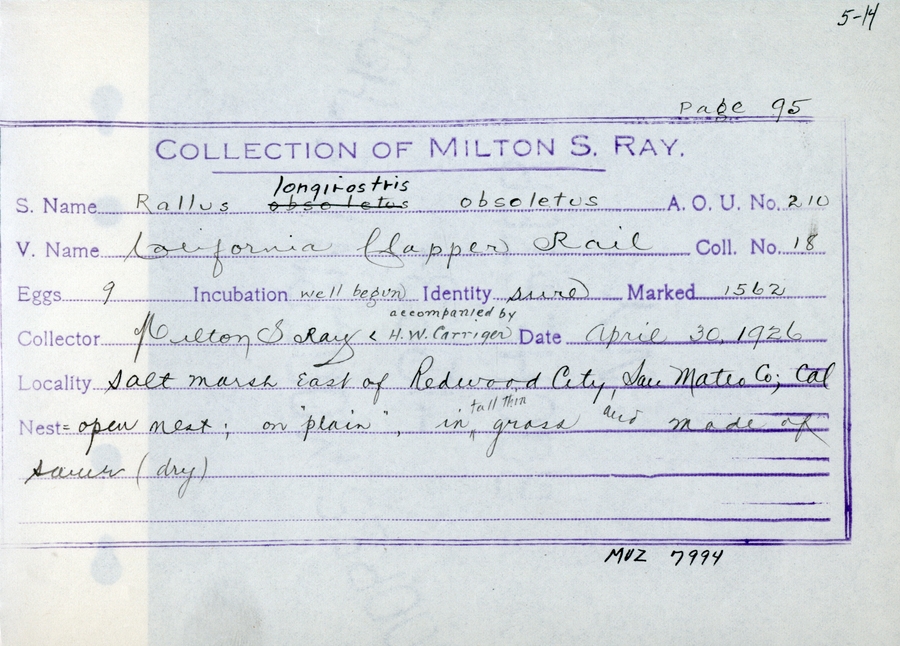 5-14
Page 95
COLLECTION OF MILTON S. RAY.
longirostris
S. Name Rallus obsoletus obsoletus A. O. U. No. 210
V. Name California Clapper Rail Coll. No. 18
Eggs 9 Incubation well begun Identity sure Marked 1562
accompanied by
Collector Milton S Ray & H.W. Carriger Date April 30, 1926
Locality Salt marsh East of Redwood City, San Mateo Co; Cal
tall thin
Nest= open nest; on "plain", in grass and made of
same (dry)
MVZ 7994